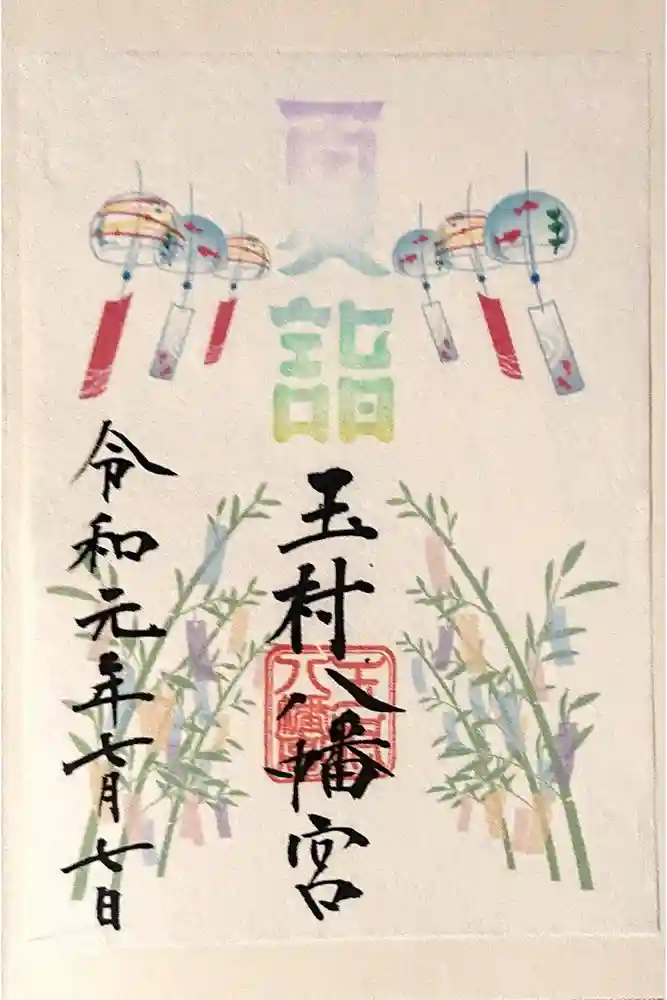 夏詣
玉村八幡宮
令和元年七月七日